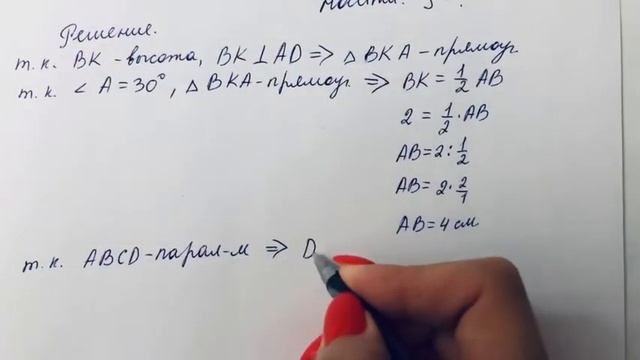 Решение.
т.к. BK - высота, BK ⊥ AD ⇒ △ BKA - прямоуг.
т.к. ∠ A = 30°, △ BKA - прямоуг. ⇒ BK = 1/2 AB
2 = 1/2 · AB
AB = 2 : 1/2
AB = 2 · 2/1
AB = 4 см
т.к. ABCD - парал-м ⇒ D